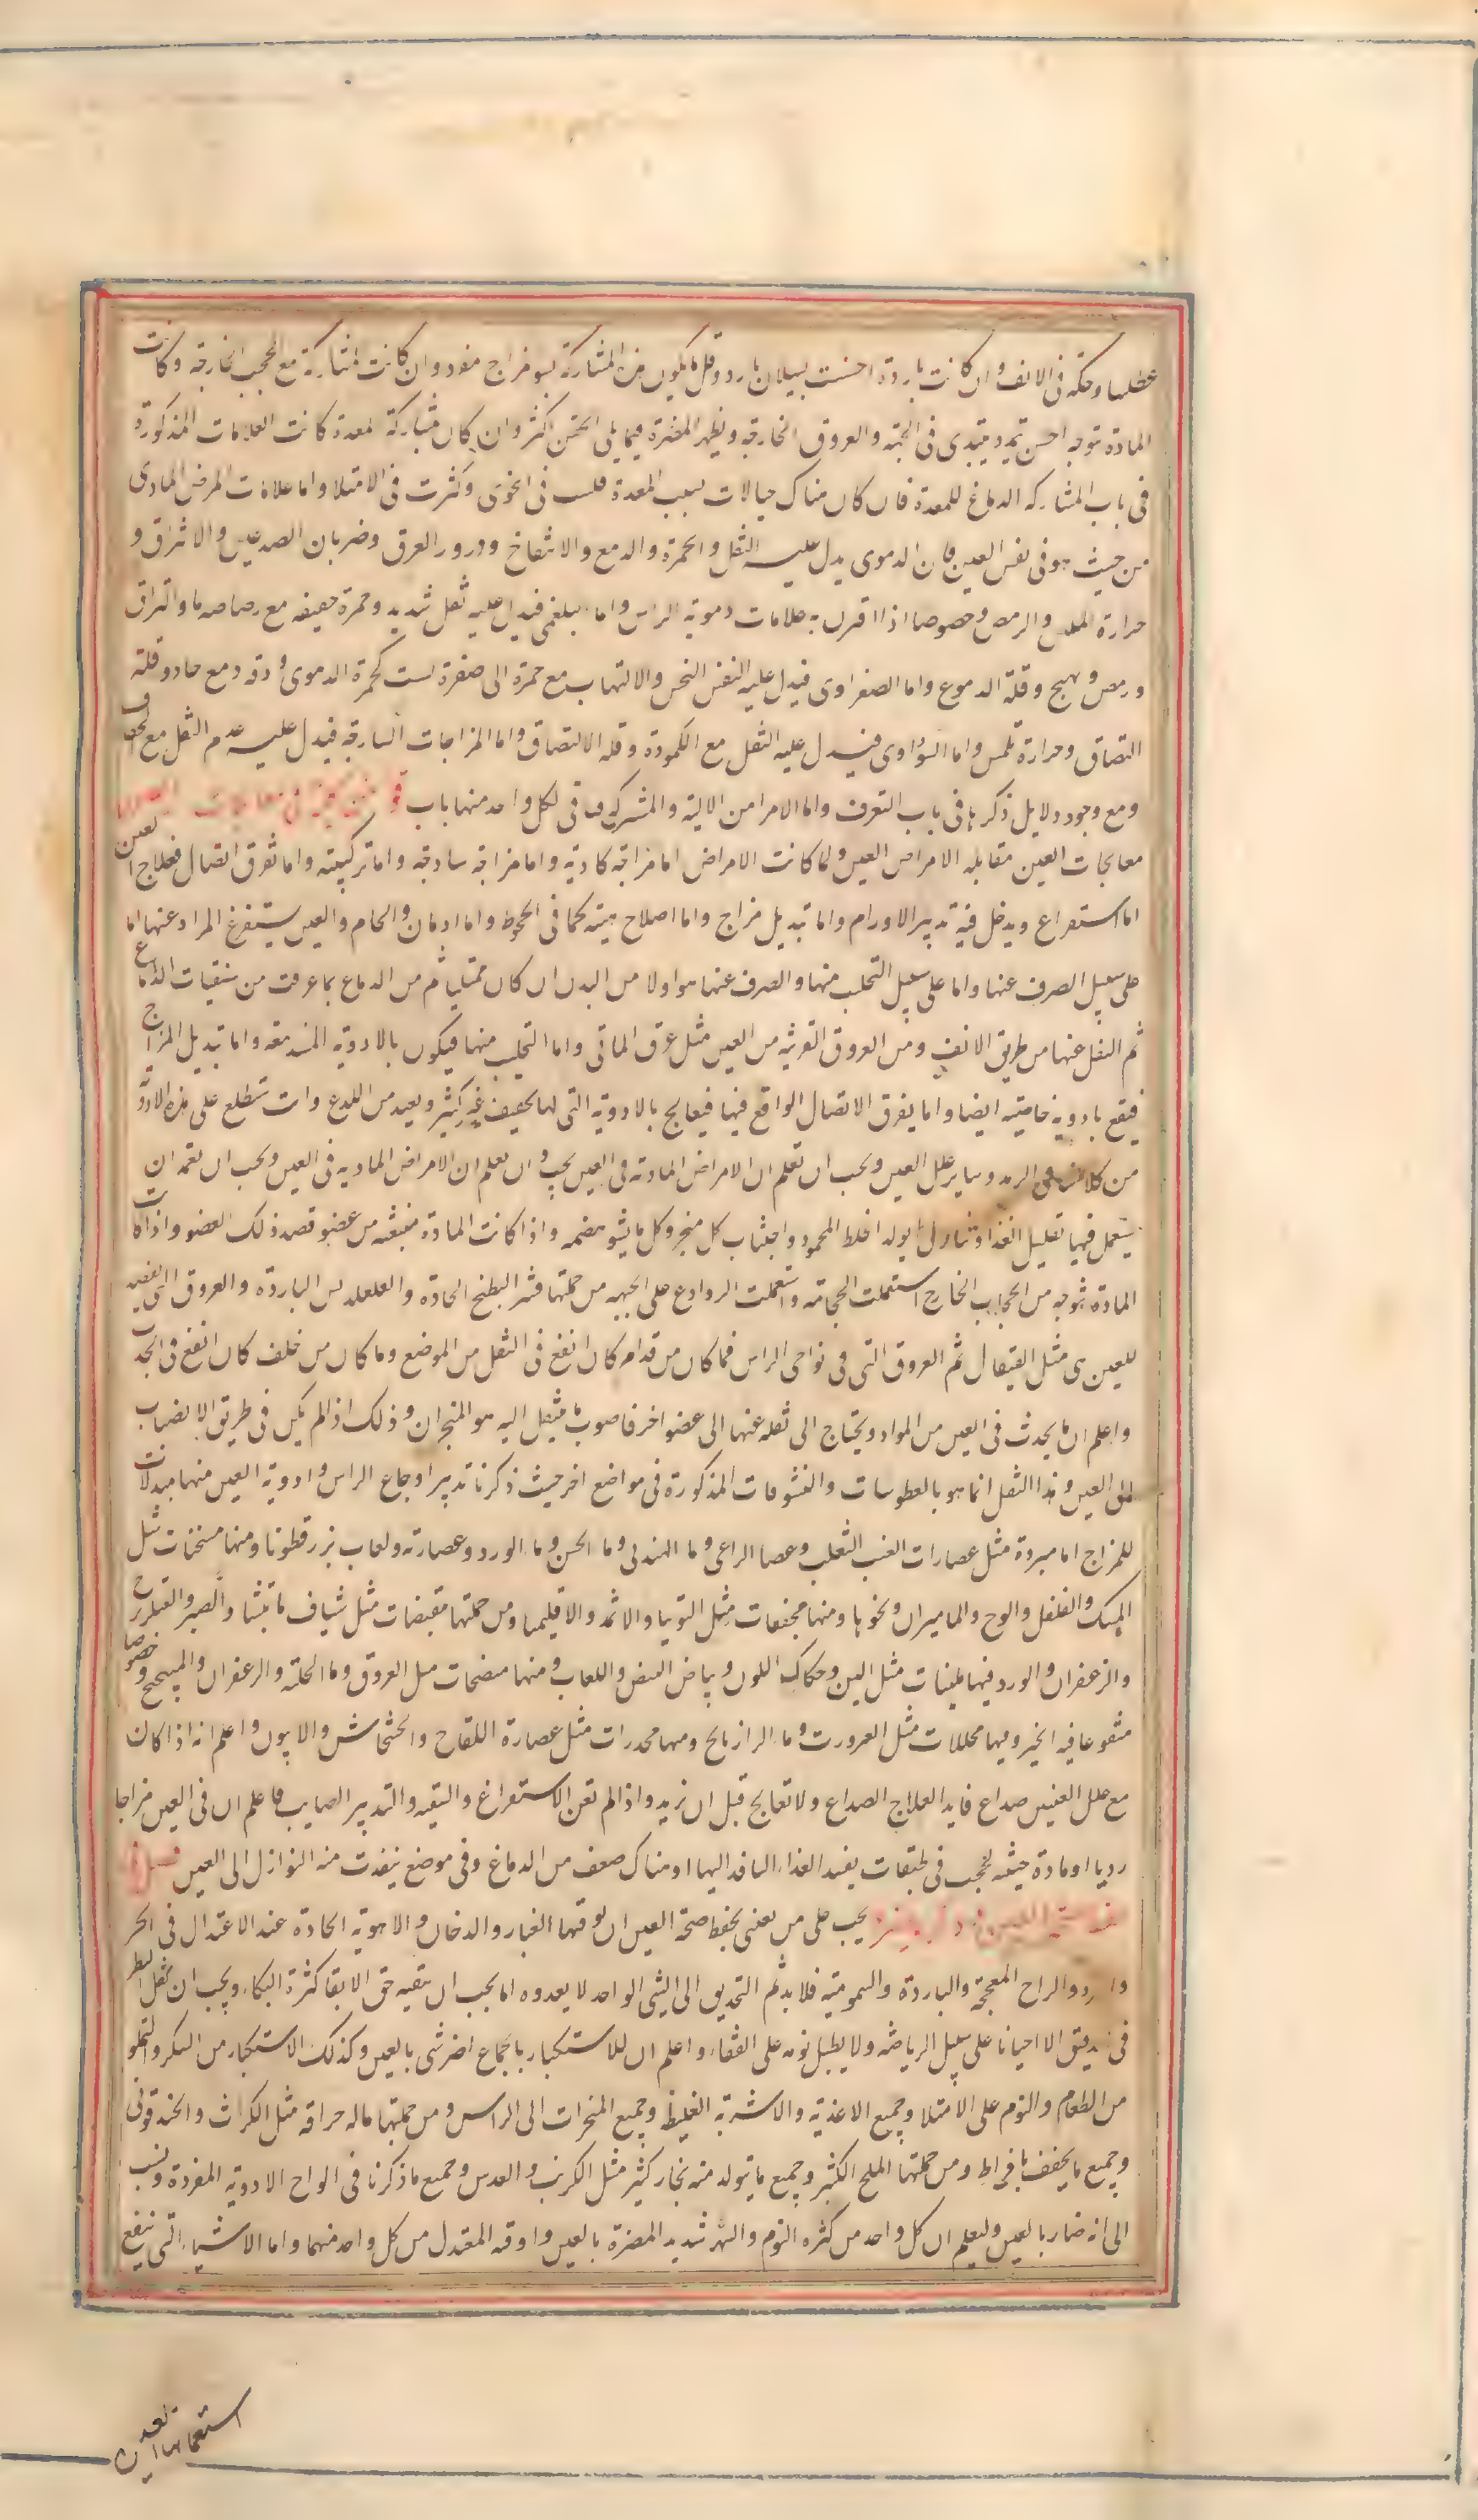 عطاسا وحكة فى الانف وان كانت باردة احسست بسيلان بارد وقل ما يكون هذه المشاركة بسو مزاج مفرد وان كانت المشاركة مع الحجب الخارجة وكانت
المادة تتوجه احس بتمدد يبتدى فى الجبهة والعروق الخارجة ويظهر المضرة فيما يلى الجفن اكثر وان كان بمشاركة المعدة كانت العلامات المذكورة
فى باب المشاركه الدماغ للمعدة فان كان هناك خيالات بسبب المعدة قلت فى الخوى وكثرت فى الامتلا واما علامات المرض المادى
من حيث هو فى نفس العين فان الدموى يدل عليه الثقل والحمرة والدمع والانتفاخ ودرور العرق وضربان الصدغين والالتزاق و
حرارة الملمس والرمص وخصوصا اذا اقترن به علامات دموية الراس واما البلغمى فيدل عليه ثقل شديد وحمرة خفيفه مع رصاصه ما والتزاق
ورمص وتهيج وقلة الدموع واما الصفراوى فيدل عليه النخس والالتهاب مع حمرة الى صفرة ليست كحمرة الدموى ودقه دمع حاد وقلة
التصاق وحرارة تلمس واما السوداوى فيدل عليه الثقل مع الكمودة وقله الالتصاق واما المزاجات الساذجة فيدل عليه عدم الثقل مع الجفاف
ومع وجود دلايل ذكرناها فى باب التعرف واما الامراض الالية والمشتركة فياتى لكل واحد منها باب
معالجات العين مقابله الامراض العين ولما كانت الامراض اما مزاجه مادية واما مزاجه ساذجه واما تركيبته واما تفرق اتصال فعلاج العين
اما استفراغ ويدخل فيه تدبير الاورام واما تبديل مزاج واما اصلاح هيئه كما فى الجحوظ واما ادمال والحام والعين يستفرغ المواد عنها اما
على سبيل الصرف عنها واما على سبيل التحلب منها والصرف عنها هو اولا من البدن ان كان ممتليا ثم من الدماغ بما عرفت من منقيات الدماغ
ثم النقل عنها من طريق الانف ومن العروق القريبه من العين مثل عرق الماقى واما التحليب منها فيكون بالادوية المدمعه واما تبديل المزاج
فيقع بادوية خاصيه ايضا واما تفرق الاتصال الواقع فيها فيعالج بالادوية التى لها تجفيف غير كثير وبعيد من اللدع وانت تطلع على هذه الادوية
من كلامنا فى الرمد وساير علل العين ويجب ان تعلم ان الامراض المادية فى العين يجب ان تعلم ان الامراض المادية فى العين ويجب ان تعمد ان
يستعمل فيها تقليل الغذا وتناول ما يولد الخلط المحمود واجتناب كل مبخر وكل ما يسو هضمه واذا كانت المادة منبعثه من عضو قصد ذلك العضو واذا كانت
المادة تتوجه من الحجاب الخارج استعملت الحجامه واستعملت الروادع على الجبهه من جملتها قشر البطيخ الحادة والقلقديس الباردة والعروق التى يفصد
للعين هى مثل القيفال ثم العروق التى فى نواحى الراس فما كان من قدام كان انفع فى النقل من الموضع وما كان من خلف كان انفع فى الجذب
واعلم ان ما يحدث فى العين من المواد ويحتاج الى نقله عنها الى عضو اخر فاصوب ما ينقل اليه هو المنخران وذلك اذا لم يكن فى طريق الانصباب
الى العين وهذا النقل انما هو بالعطوسات والنشوقات المذكورة فى مواضع اخر حيث ذكرنا تدبير اوجاع الراس وادوية العين منها مبدلات
للمزاج اما مبردة مثل عصارات العنب الثعلب وعصا الراعى وما الهندبى وما الخس وما الورد وعصارته ولعاب بزر قطونا ومنها مسخنات مثل
المسك والفلفل والوج والماميران ونحوها ومنها مجففات مثل التوتيا والاثمد والاقليميا ومن جملتها مقبضات مثل شياف ماميثا والصبر
والزعفران والورد فيها ملينات مثل اللبن وحكاك اللوز وبياض البيض واللعاب ومنها منضجات مثل العروق وما الحلبة والزعفران والميبختج وخصوصا
منقوعا فيه الخبز ومنها محللات مثل العنزروت وما الرازيانج ومنها مخدرات مثل عصارة اللقاح والخشخاش والافيون واعلم انه اذا كان
مع علل العينين صداع فابدا بعلاج الصداع ولا تعالج قبل ان تزيله واذا لم تغن الاستفراغ والتنقيه والتدبير الصايب فاعلم ان فى العين مزاجا
رديا او مادة خبيثه لحجت فى طبقات يفسد الغذاء النافذ اليها او هناك ضعف من الدماغ وفى موضع ينفذت منه النوازل الى العين
يجب على من يعنى بحفظ صحة العين ان يوقيها الغبار والدخان والاهوية الحادة عند الاعتدال فى الحر
والبرد والراح المعجة والباردة والسمومية فلا يديم التحديق الى الشى الواحد لا يعدوه اما يجب ان يتقيه حق الاتقا كثرة البكاء ويجب ان يقل النظر
فى الدقيق الا احيانا على سبيل الرياضه ولا يطيل نومه على القفاء واعلم ان للاستكثار بالجماع اضر شى بالعين وكذلك الاستكثار من السكر والتملو
من الطعام والنوم على الامتلا وجميع الاغذية والاشربه الغليظه وجميع المبخرات الى الراس ومن جملتها ماله حرافه مثل الكراث والحندقوقى
وجميع ما يجفف بافراط ومن جملتها الملح الكثير وجميع ما يتولد منه بخار كثير مثل الكرنب والعدس وجميع ما ذكرنا فى الواح الادوية المفردة ونسب
الى انه ضار بالعين وليعلم ان كل واحد من كثره النوم والسهر شديد المضرة بالعين واوقه المعتدل من كل واحد منهما واما الاشياء التى ينفع
استعمالها العين